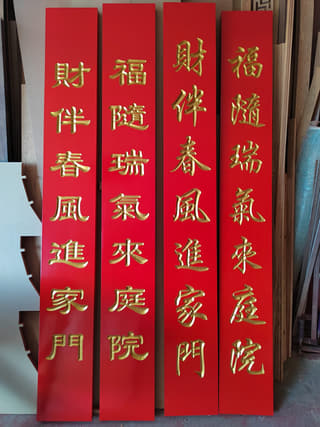 財伴春風進家門
福隨瑞氣來庭院
財伴春風進家門
福隨瑞氣來庭院